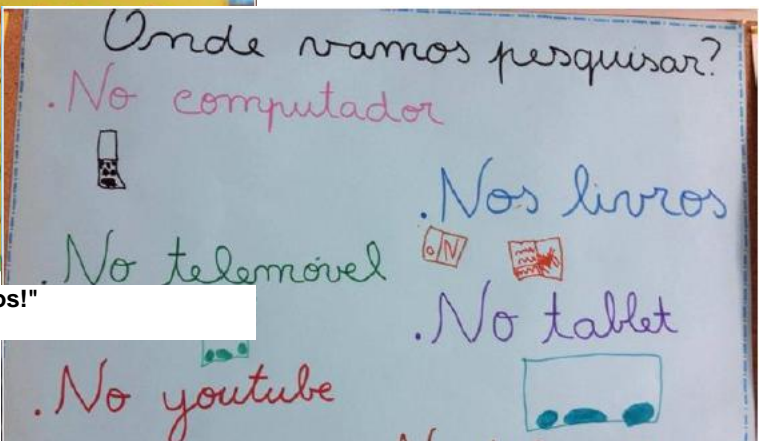 Onde vamos pesquisar?
.No computador
.Nos livros
.No telemóvel
os!"
.No tablet
.No youtube